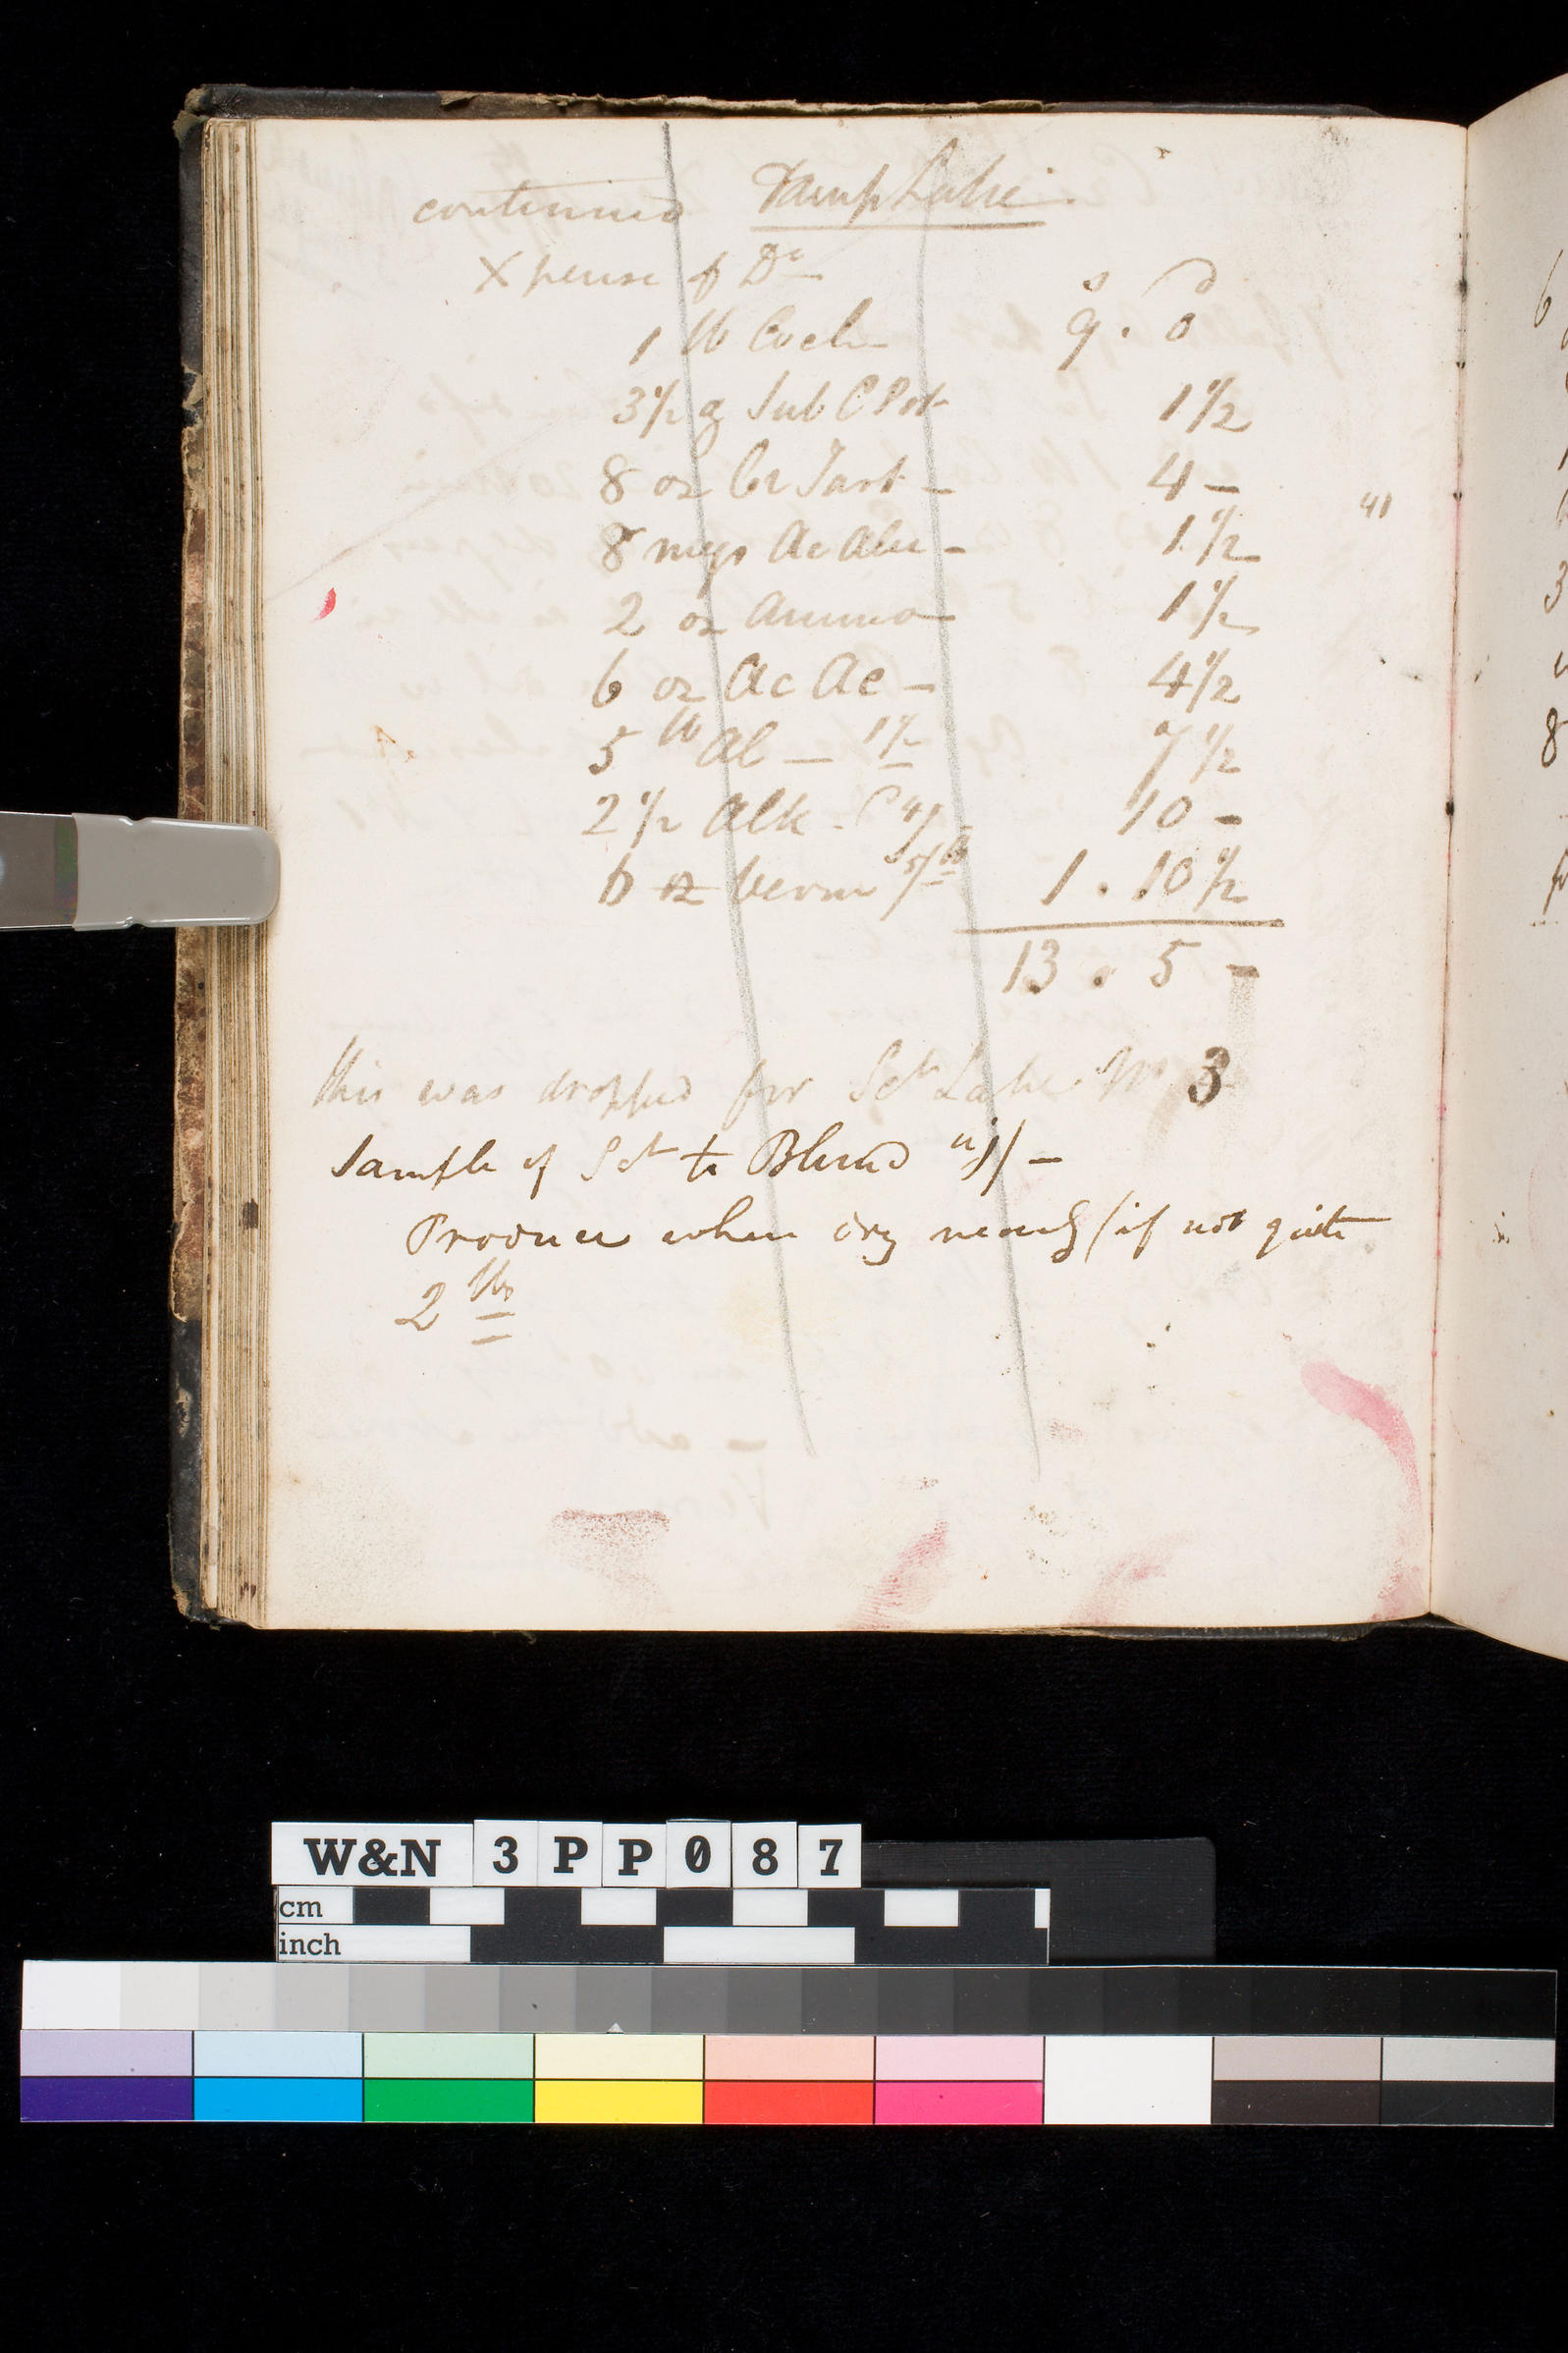 continued Damp Lake
Xpense of Do
s D
1 lb Coch 9 . 0
3 1/2 g Sub C Pot 1 1/2
8 oz Cr Tart - 4 -
41
8 mgs Ac Alu - 1 1/2
2 oz Ammo 1 1/2
6 oz Ac Ac - 4 1/2
5 lb Al - 1 1/2 7 1/2
2 1/2 Alk - 4/ 10 -
6 oz Verm 5/ lb 1 . 10 1/2
13 . 5 -
this was dropped for Sct Lake No 3
Sample of Sct to Blend
Produce when dry nearly (if not quite
2 lbs
W&N 3PP087
cm
inch